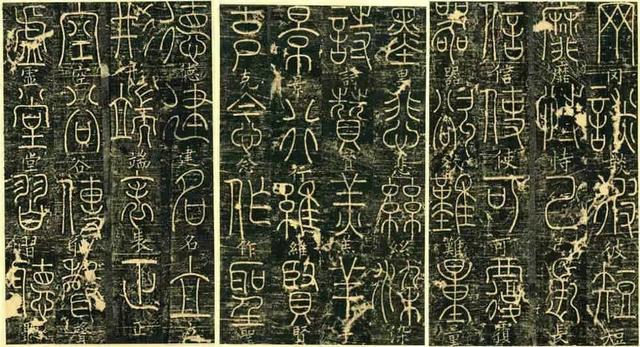 罔談彼短
靡恃己長
信使可覆
器欲難量
墨悲絲染
詩讚羔羊
景行維賢
克念作聖
德建名立
形端表正
空谷傳聲
虛堂習聽